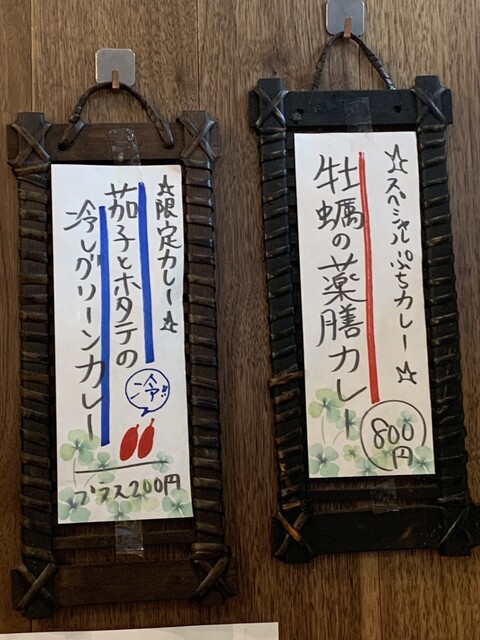 ☆スペシャルぷちカレー☆
牡蠣の薬膳カレー
800円
☆限定カレー☆
茄子とホタテの
冷しグリーンカレー
冷!!
プラス200円